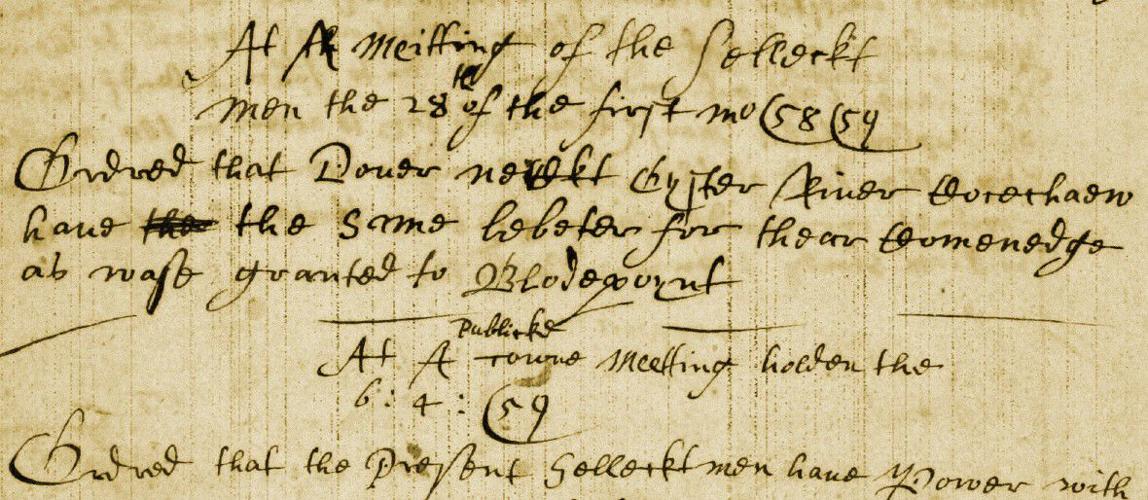 At A Meitting of the Selleckt
men the 28th of the first mo (58 (59
Ordred that Dover neckt Oyster River Cocechaew
have the the same lebeter for thear Comenedge
as wase granted to Blodepoynt
At A Publicke towne Meetting holden the
6 : 4 : (59
Ordred that the Present Selleckt men have Power with